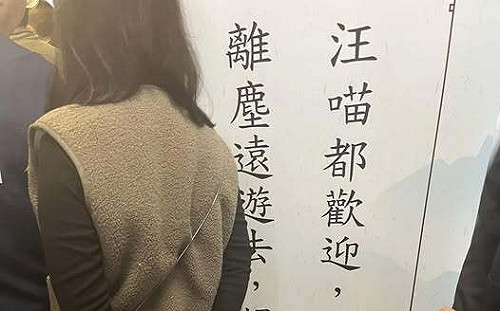 汪喵都歡迎，
離塵遠遊去，